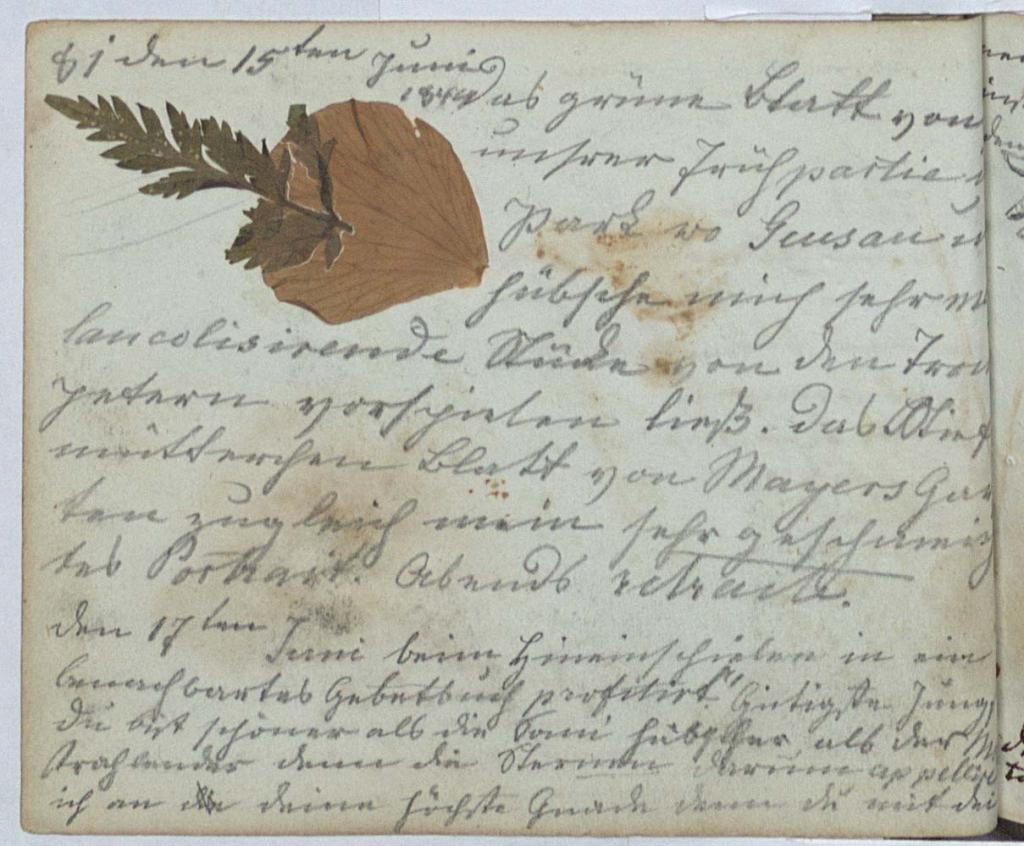 81 den 15ten Juni
1844 das grüne Blatt von
unsrer Frühpartie
Park wo Gensau
hübsche mich sehr me
lancolisirende Stücke von den Trom
petern vorspielen ließ. Das Stief
mütterchen Blatt von Mayers Gar
ten zugleich mein sehr geschmeich
tes Portrait. Abends retraite.
den 17ten
Juni beim Hineinschielen in ein
benachbartes Gebetbuch profitirt "Gütigste Jung
du bist schöner als die Sonne hübscher als der M
strahlender denn die Sterne darum appellire
ich an deine höchste Gnade denn du mit dei